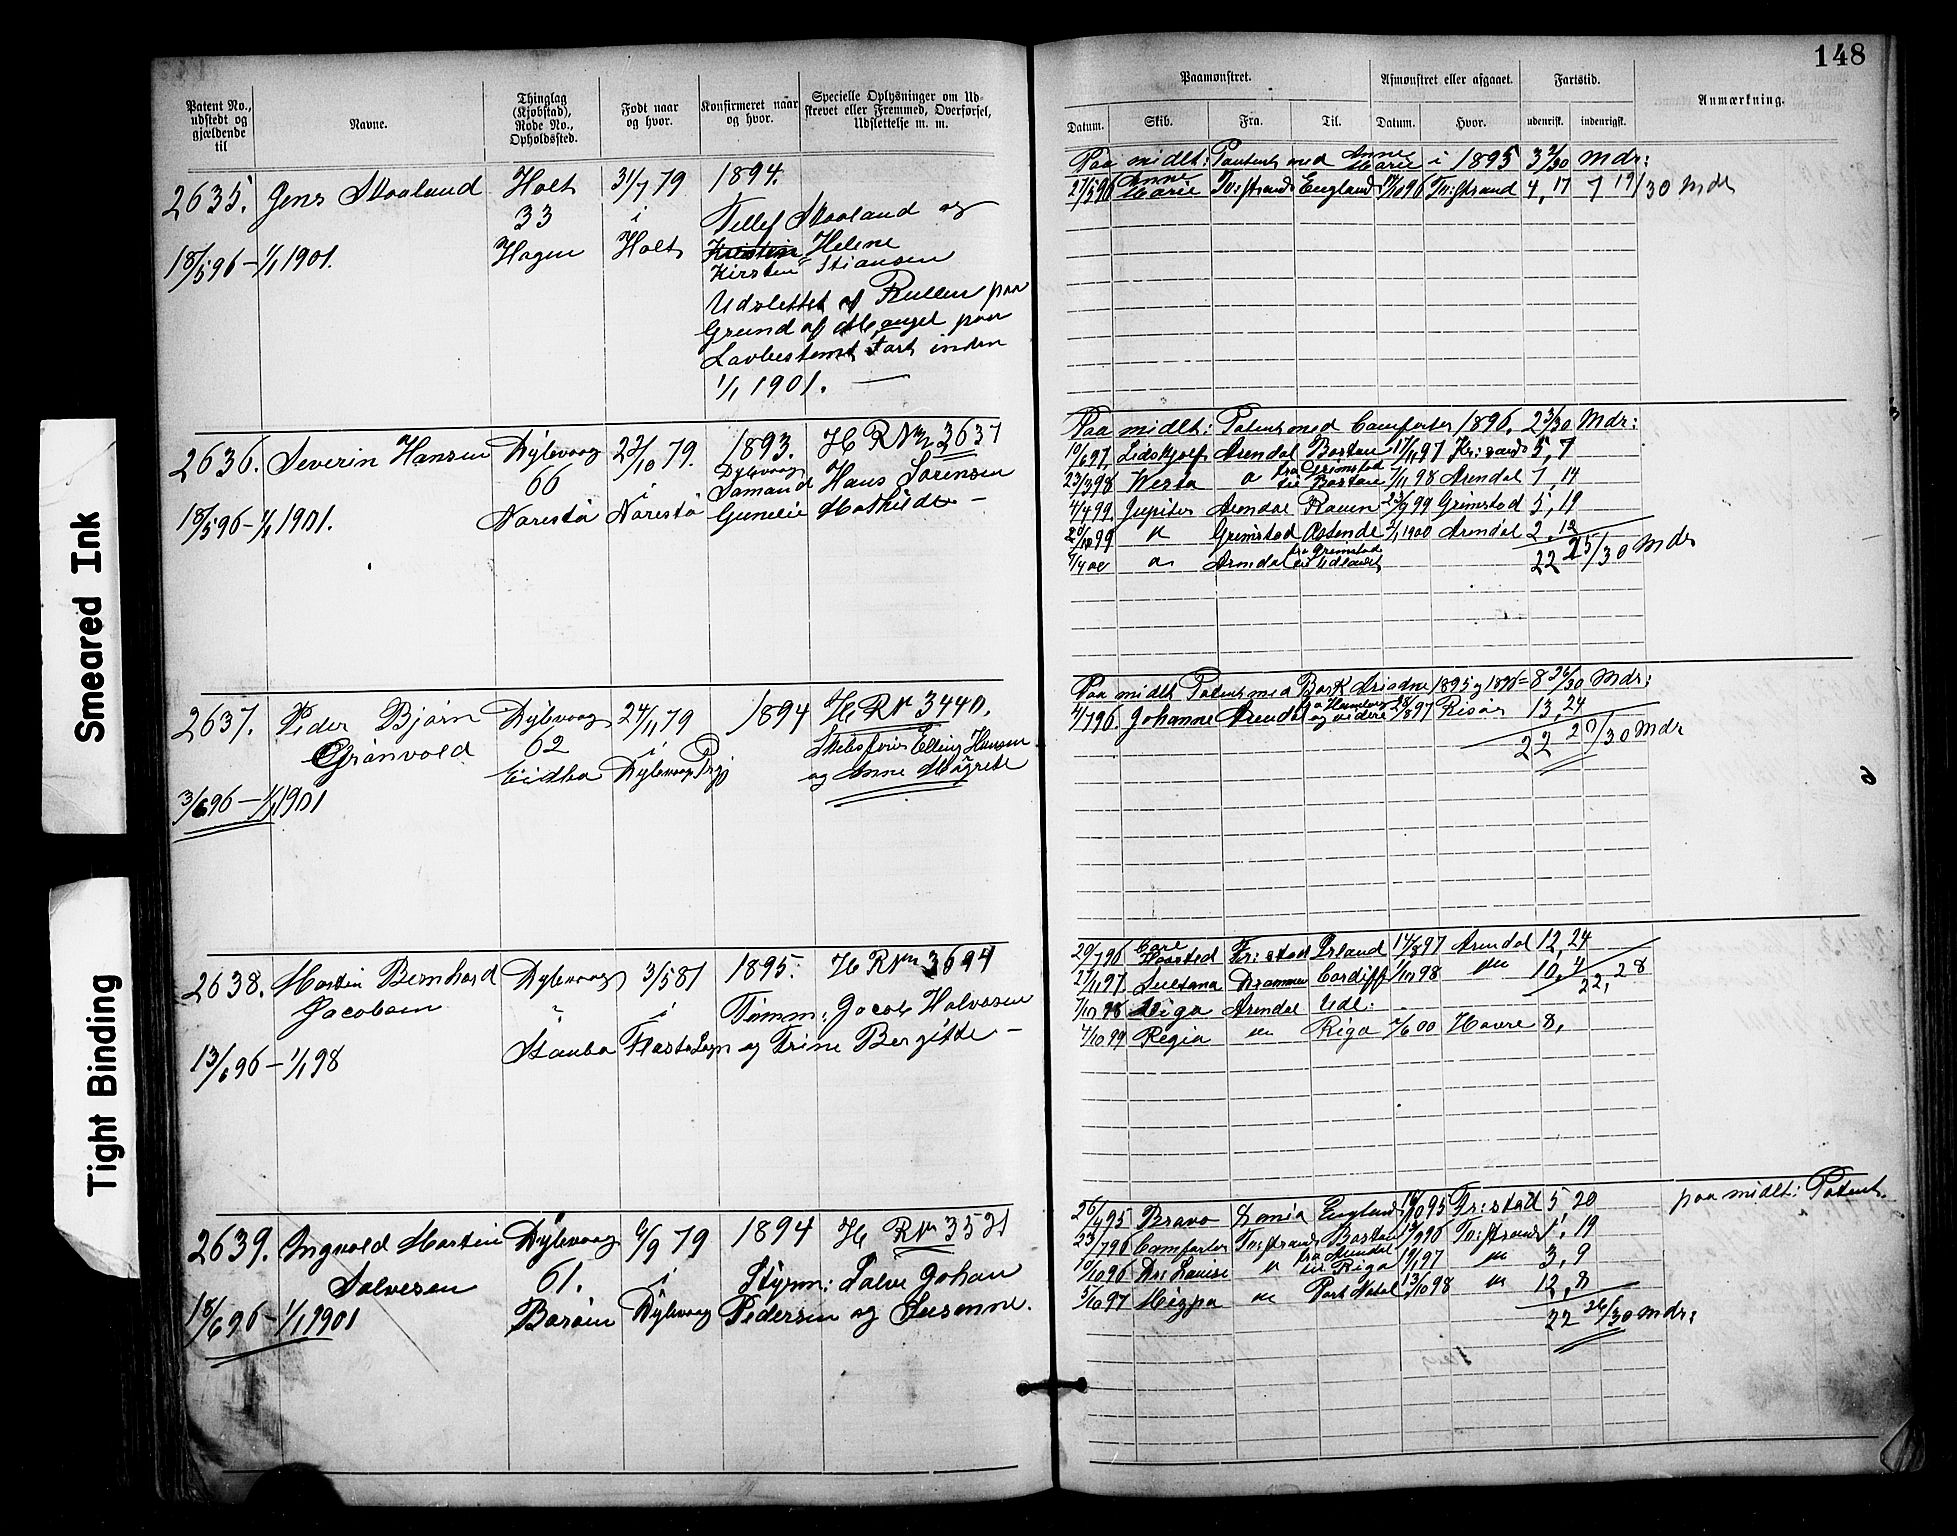 148
Patent No., udstedt og gjældende til
Navne.
Thinglag (Kjøbstad), Rode No., Opholdssted.
Født naar og hvor.
Konfirmeret naar og hvor.
Specielle Oplysninger om Udskrevet eller Fremmed, Overførsel, Udslettelse m. m.
Paamønstret.
Afmønstret eller afgaaet.
Fartstid.
Anmærkning.
Datum. Skib. Fra. Til. Datum. Hvor. udenrigst. indenrigst.
2635. Jens Skaaland Holt 31/7 79 1894.
33 i Tellef Skaaland og
18/5 96 – 1/1 1901. Hagen Holt Kirsten Helene
Kirsten Stiansen
Udslettet af Rullen paa
Grund af Mangel paa
Lovbestemt Fart inden
1/1 1901. —
Paa midlt: Patent med Anne Marie i 1895 3 2/30 Mdr:
27/5 96 Anne Marie Tv:strand England 14/10 96 Tv:strand 4, 17 7 19/30 Mdr
2636. Severin Hansen Dybvaag 22/10 79. 1893. H R No 3637
66 i Dybvaag
Sømand Hans Sørensen
18/5 96 – 1/1 1901. Narestø Narestø Gunelie Mathilde –
Paa midlt: Patent med Comforter 1896. 2 23/30 Mdr:
10/6 97 Lidskjalf Arendal Boston 17/11 97 Kr:sand 5, 7
23/3 98 Westa " fra Grimstad til Boston 7/11 98 Arendal 7, 14
4/4 99. Jupiter Arendal 23/9 99 Grimstad 5, 19
20/10 99 " Grimstad Ostende 2/1 1900 Arendal 2, 12
7/4 00 " Arendal fra Grimstad til Udlandet 22 15/30 Mdr
2637. Peder Bjørn Dybvaag 24/1 79 1894 H R No 3440.
Grønvold 62 i Skibsfører Elling Hansen
Eidbo Dybvaag Prgj og Anne Margrete
3/6 96 – 1/1 1901
Paa midlt Patent med Bark Ariadne 1895 og 1896 = 8 26/30 Mdr:
4/7 96. Johanne Arendal og videre 28/8 97 Risør 13, 24
22 20/30 Mdr
2638. Martin Bernhard Dybvaag 3/5 81 1895. H R No 3694
Jacobsen " i Tømm: Jacob Halvorsen
13/6 96 – 1/1 98 Staubø Flosta Sogn og Trine Bergitte –
20/7 96 Fr:stad Irland 14/8 97 Arendal 12, 24
27/11 97. Sultana Drammen Cardiff 1/10 98 " 10, 4
22, 28
7/10 98 Riga Arendal Udl:
4/10 99 Regia " Riga 7/6 00 Havre 8,
2639. Ingvold Martin Dybvaag 6/9 79 1894 H R No 3521
Salvesen 61. i Styrm: Salve Johan
18/6 96 – 1/1 1901 Borøen Dybvaag Pedersen og Susanne.
paa midlt: Patent.
26/4 95 Bravo England 16/10 95 Fr:stad 5 20
23/7 96 Comforter Tv:strand Boston 13/9 96 Tv:strand 1, 19
10/10 96 Dr: Louise " fra Arendal til Riga 19/1 97 " 3, 9
5/10 97 Mizpa " Port Natal 13/10 98 " 12, 8
22 26/30 Mdr:
Smeared Ink
Tight Binding